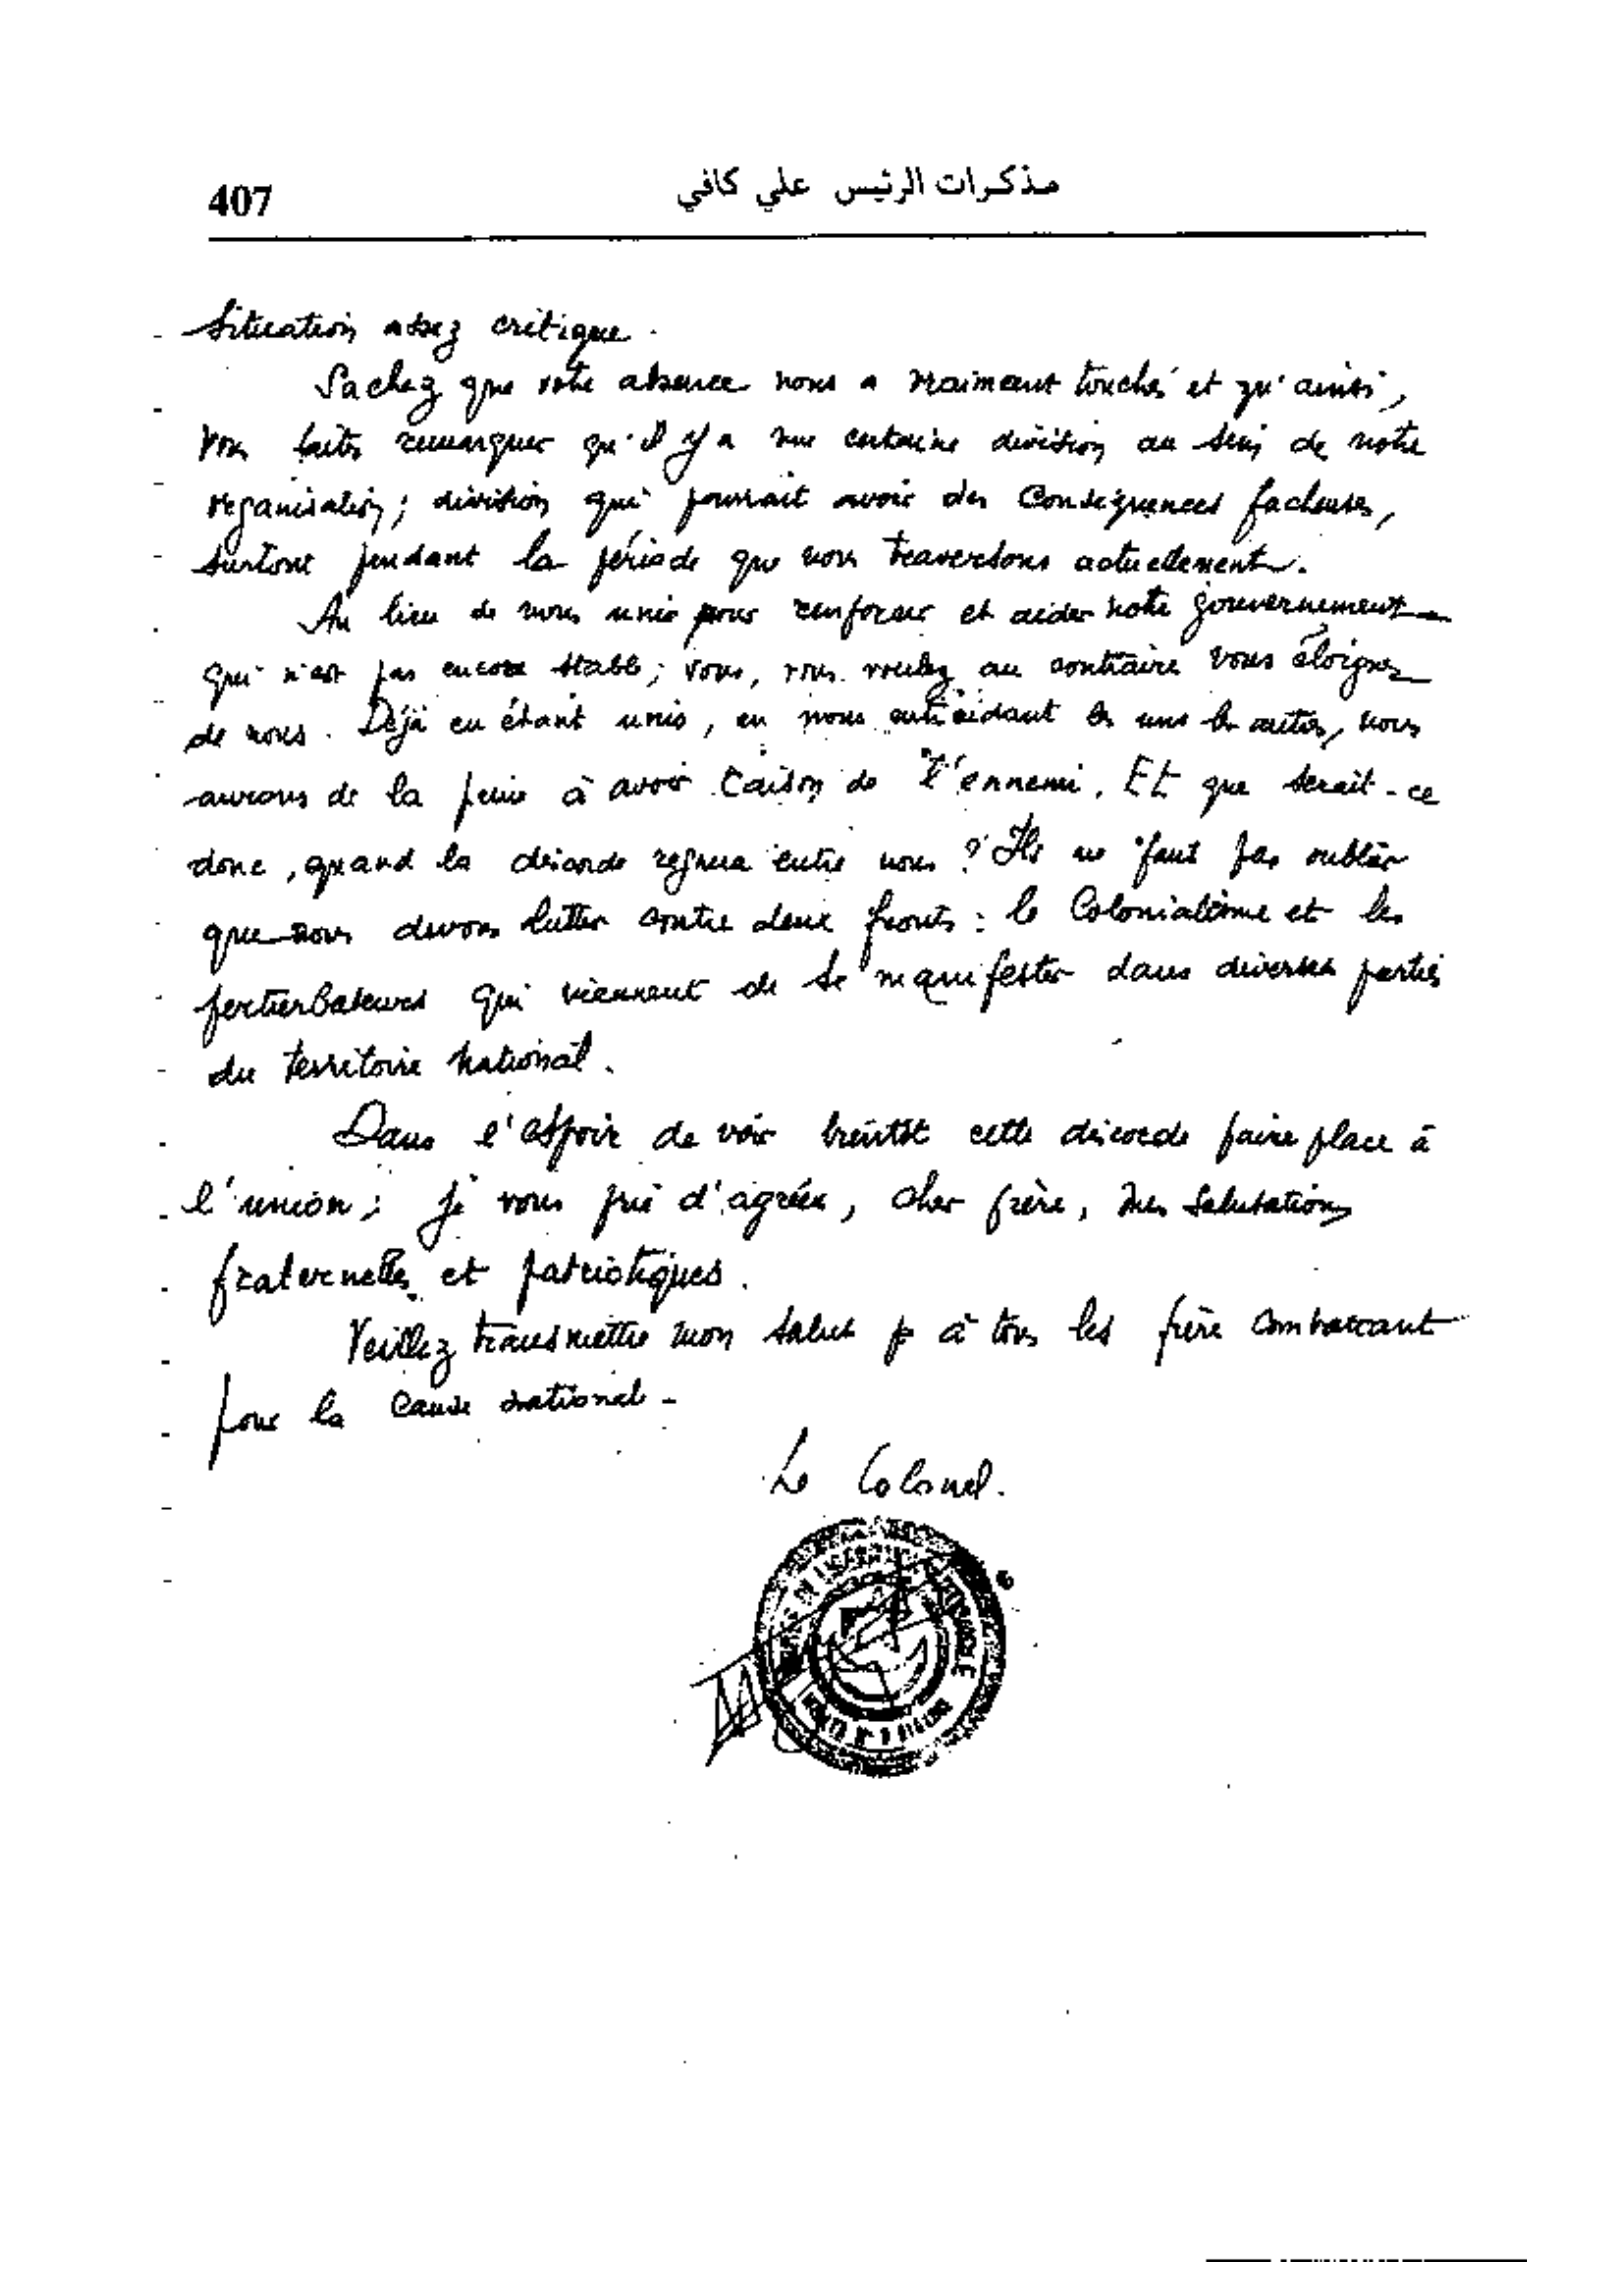 407
مذكرات الرئيس علي كافي
Situation assez critique.
Sachez que votre absence nous a vraiment touché et qu'ainsi,
Vous faites remarquer qu'il y a une certaine division au sein de notre
organisation; division qui pourrait avoir des Conséquences facheuses,
surtout pendant la période que nous traversons actuellement.
Au lieu de nous unir pour renforcer et aider notre gouvernement
qui n'est pas encore stable; vous, vous voulez au contraire vous éloigner
de nous. Déjà en étant unis, en nous entraidant les uns les autres, nous
aurons de la peine à avoir raison de l'ennemi. Et que serait-ce
donc, quand la discorde regnera entre nous? Il ne faut pas oublier
que nous devons lutter contre deux fronts: le Colonialisme et les
perturbateurs qui viennent de se manifester dans diverses parties
du territoire national.
Dans l'espoir de voir bientôt cette discorde faire place à
l'union; je vous prie d'agréer, cher frère, mes salutations
fraternelles et patriotiques.
Veillez transmettre mon salut à tous les frère combattant
pour la cause national -
Le Colonel.